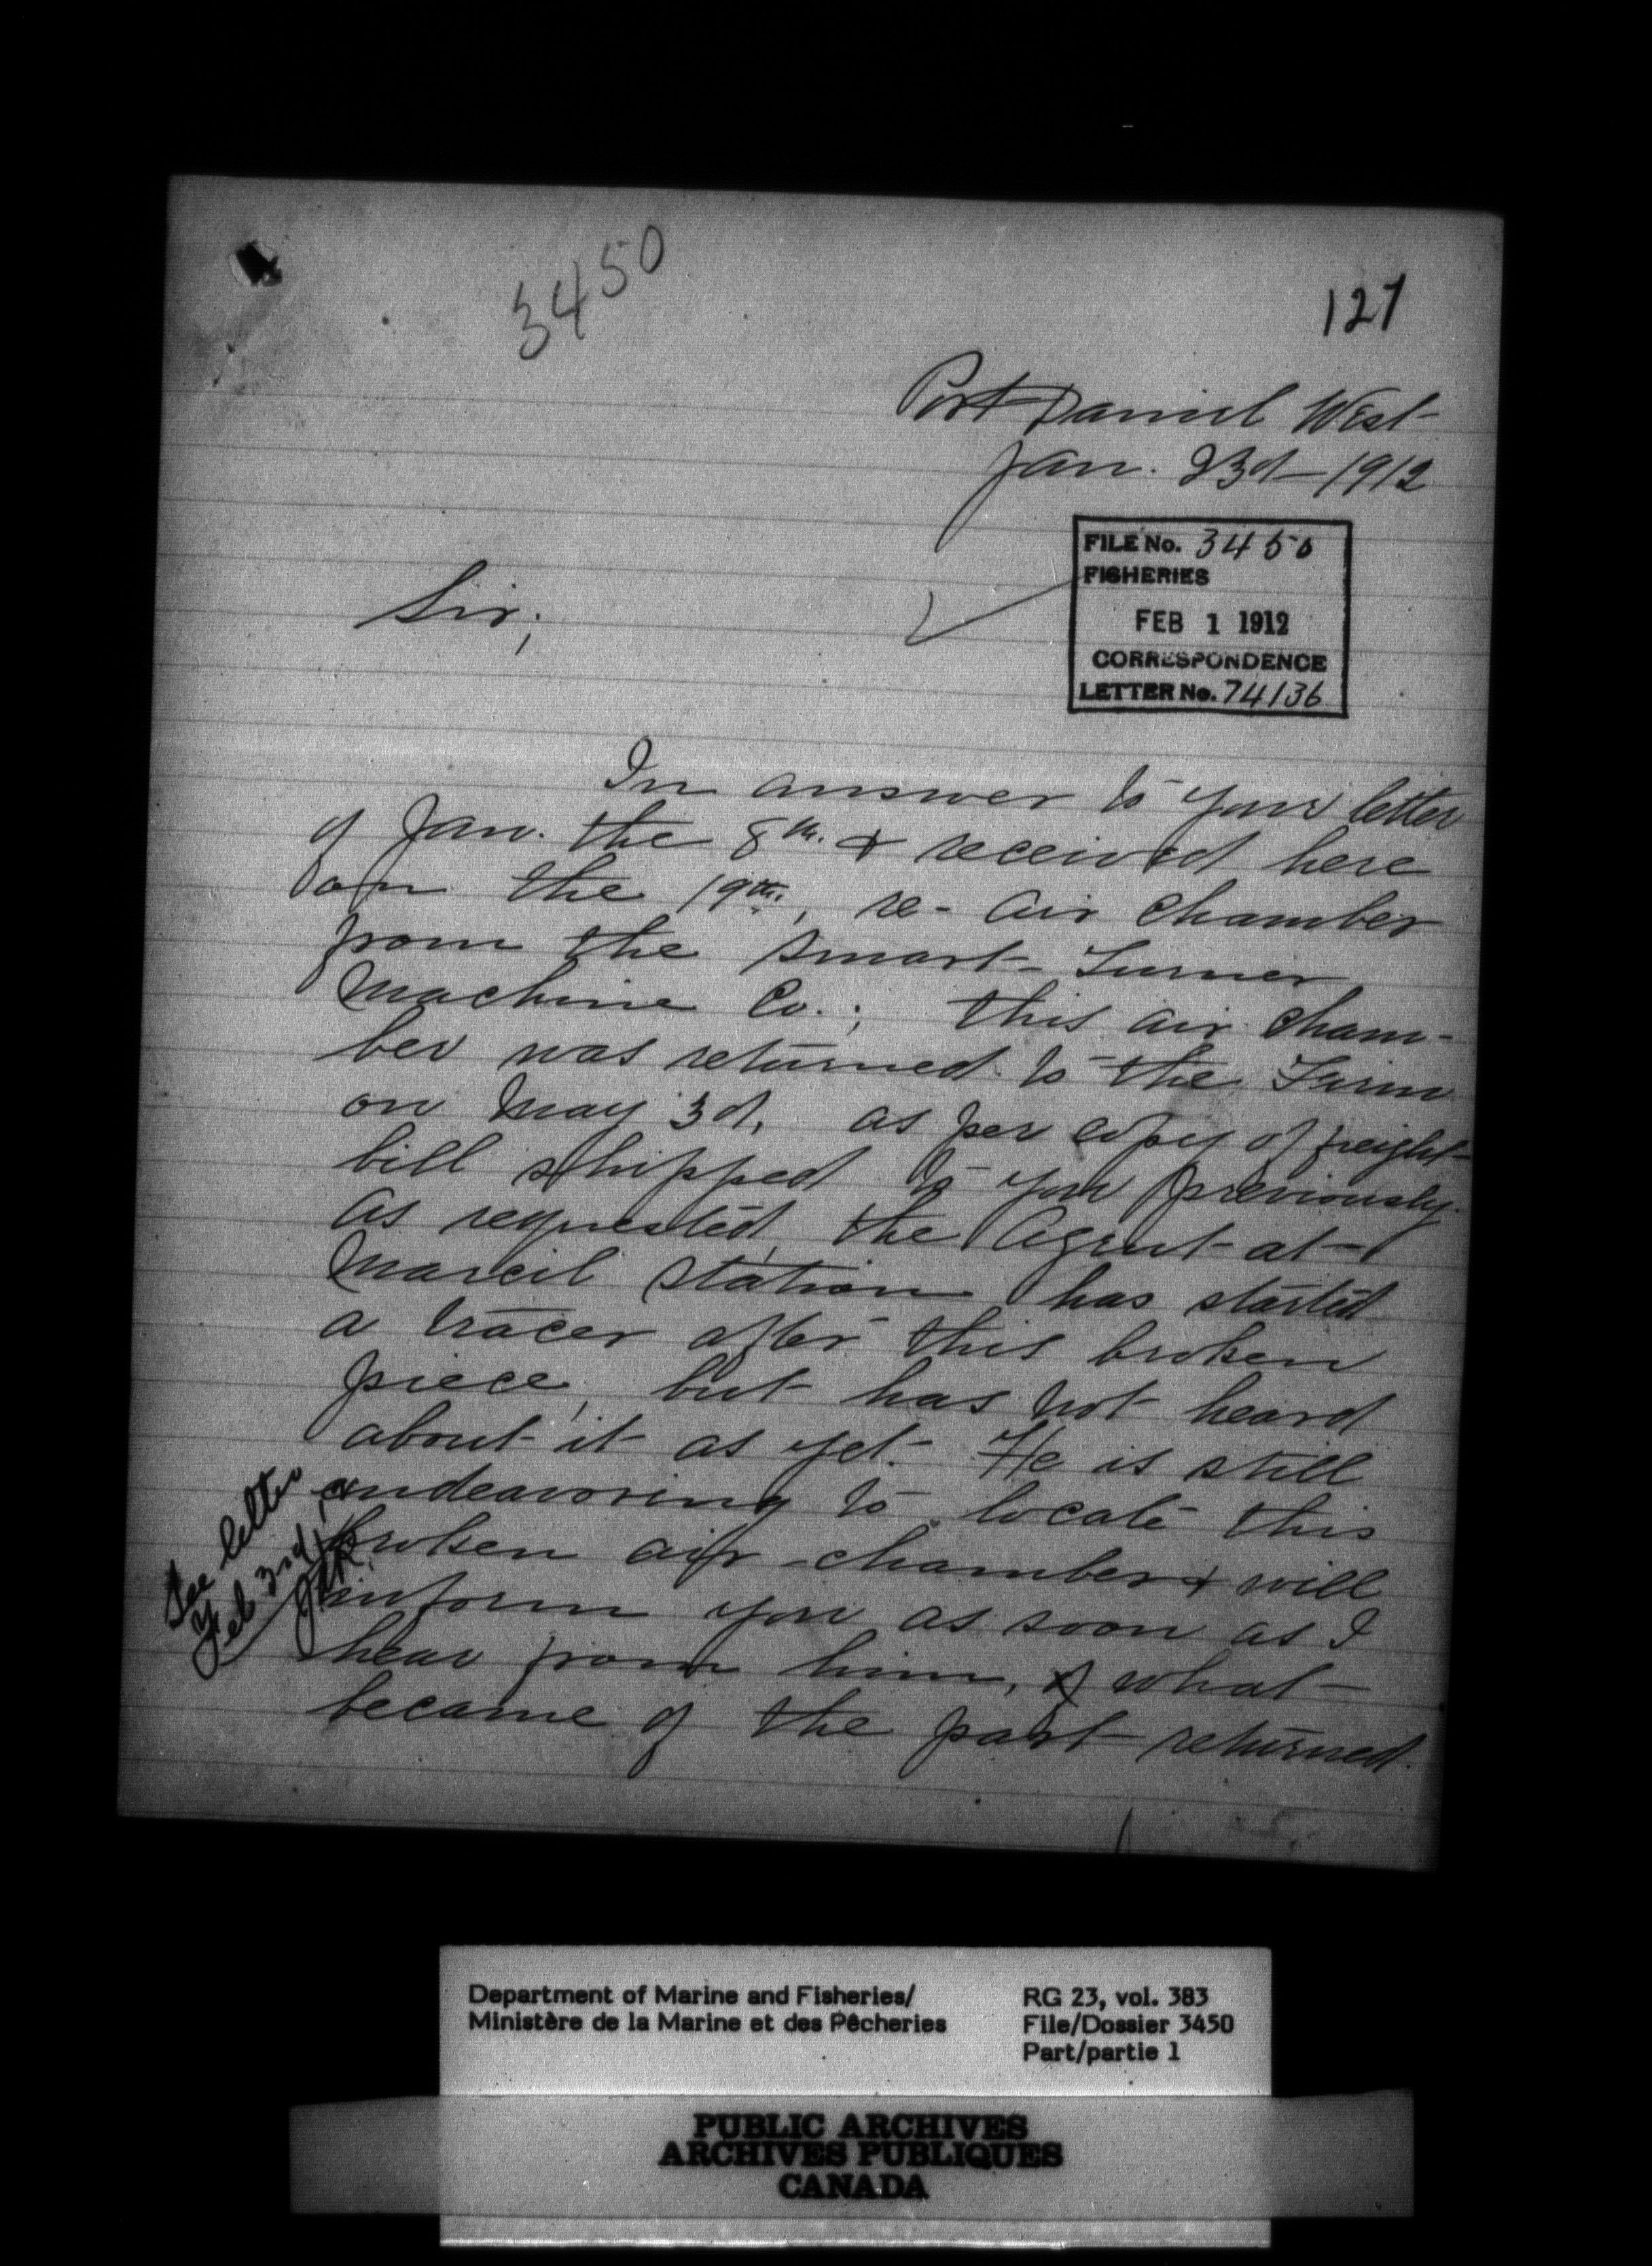 3450
127
Port Daniel West
Jan. 23d - 1912
FILE No. 3450
FISHERIES
FEB 1 1912
CORRESPONDENCE
LETTER No. 74136
Sir;
In answer to your letter
of Jan. the 8th. & received here
on the 19th., re- air chamber
from the Smart-Turner
Machine Co.; this air cham-
ber was returned to the Firm
on May 3d, as per copy of freight
bill shipped to you previously.
As requested, the Agent at
Marcil Station has started
a tracer after this broken
piece, but has not heard
about it as yet. He is still
endeavoring to locate this
broken air-chamber & will
inform you as soon as I
hear from him, & what
became of the part returned.
See letter
Feb 3rd,
Department of Marine and Fisheries/
Ministère de la Marine et des Pêcheries
RG 23, vol. 383
File/Dossier 3450
Part/partie 1
PUBLIC ARCHIVES
ARCHIVES PUBLIQUES
CANADA